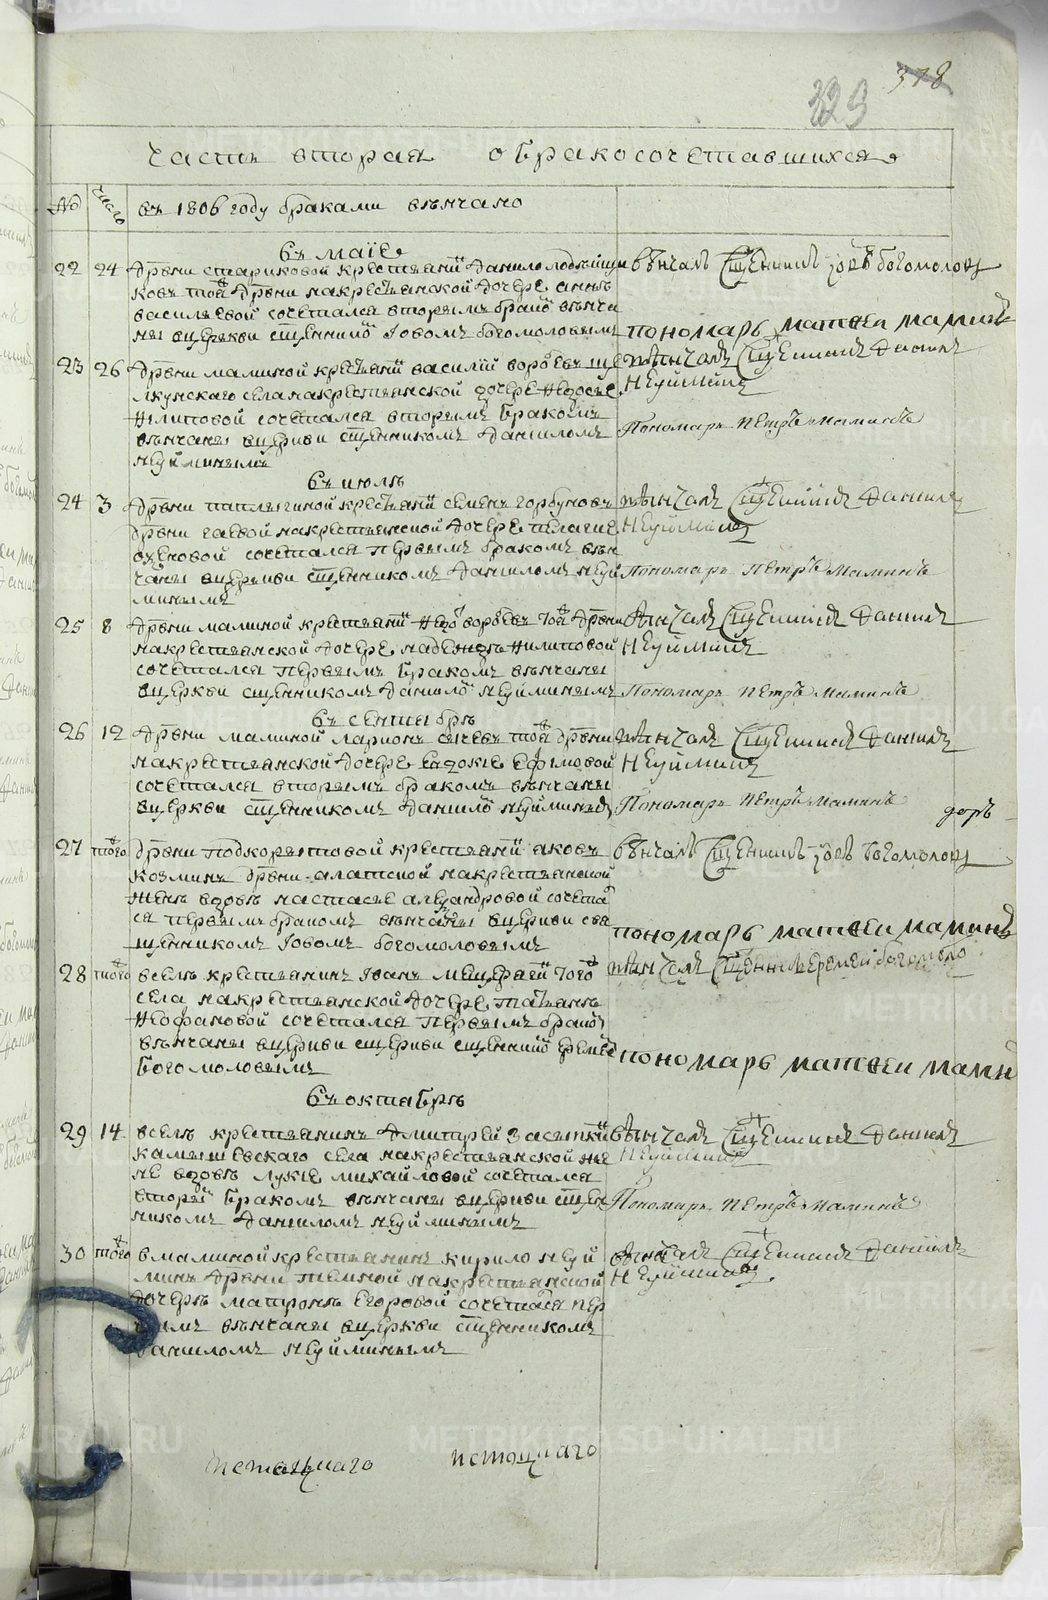 378
229
Часть вторая о бракосочетавшихся
№ Число въ 1806 году браками венчано
въ маїе
22 24 дрвни стариковой крестьянинъ данило
ковъ тойже дрвни на крестьянской дочере аннѣ
васильевой сочетался вторымъ бракомъ венча
ны въ церькви сщенникомъ Іовомъ богомоловымъ
Венчалъ Сщенникъ Іовъ богомоловъ
пономарь матвеи маминъ
23 26 дрвни маминой крестьянинъ василїй воробьевъ
лкунскаго села на крестьянской дочере Федосье
Филиповой сочетался вторымъ бракомъ
венчаны в церкви сщенникомъ данииломъ
неуйминымъ
венчалъ Сщенникъ Данїилъ
Неуйминъ
Пономарь Петръ Маминъ
въ июлѣ
24 3 дрвни крестьянинъ семенъ горбуновъ
дрвни гаевой на крестьянской дочере пелагие
сочетался первымъ бракомъ вен
чаны в церькви сщенникомъ данииломъ неуй
минымъ
венчалъ Сщенникъ Даниилъ
Неуйминъ
Пономарь Петръ Маминъ
25 8 дрвни маминой крестьянинъ воробьевъ тойже дрвни
на крестьянской дочере надежде Филиповой
сочетался первымъ бракомъ венчаны
в церкви сщенникомъ Данииломъ неуйминымъ
Венчалъ Сщенникъ Даниилъ
Неуйминъ
Пономарь Петръ Маминъ
въ сентябрѣ
26 12 дрвни маминой ларионъ сычевъ тойже дрвни
на крестьянской дочере евдокїе ефимовой
сочетался вторымъ бракомъ венчаны
в церкви сщенникомъ Данииломъ неуйминымъ
венчалъ Сщенникъ Даниилъ
Неуйминъ
Пономарь Петръ Маминъ
доръ
27 тогож дрвни подкорытовой крестьянинъ яковъ
козминъ дрвни на крестьянской
жене вдовѣ настасье алеѯандровой сочета
ся первымъ бракомъ венчаны в церкви свя
щенникомъ Іовомъ богомоловымъ
Венчалъ Сщенникъ Іовъ Богомоловъ
пономарь матвеи маминъ
28 тогож в селѣ крестьянинъ Іванъ тогож
села на крестьянской дочере татьянѣ
Феофановой сочетался первымъ бракомъ
венчаны в церкви сщеркви сщенникомъ еремеемъ
богомоловымъ
венчалъ Сщенникъ еремей богомоло
пономарь матвеи мами
въ октябрѣ
29 14 в селѣ крестьянинъ Дмитрей Засыпкинъ
камышевскаго села на крестьянской же
не вдовѣ лукїе михайловой сочетался
вторымъ бракомъ венчаны в церкви сщен
никомъ Данииломъ неуйминымъ
венчалъ Сщенникъ Данїилъ
Неуйминъ
Пономарь Петръ Маминъ
30 тогож в маминой крестьянинъ кирило неуй
минъ дрвни темной на крестьянской
дочерѣ матронѣ егоровой сочетался пер
вымъ венчаны в церкви сщенникомъ
данииломъ неуйминымъ
венчалъ Сщенникъ Данїилъ
Неуйминъ